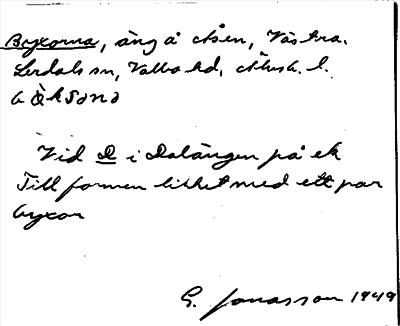 Byxorna, äng å Åsen, Västra.
Lerdals sn, Valbo hd, Älvsb. l.
bö̀ksənə
Vid D i Dalängen på ek
Till formen likhet med ett par
byxor
G. Jonasson 1949